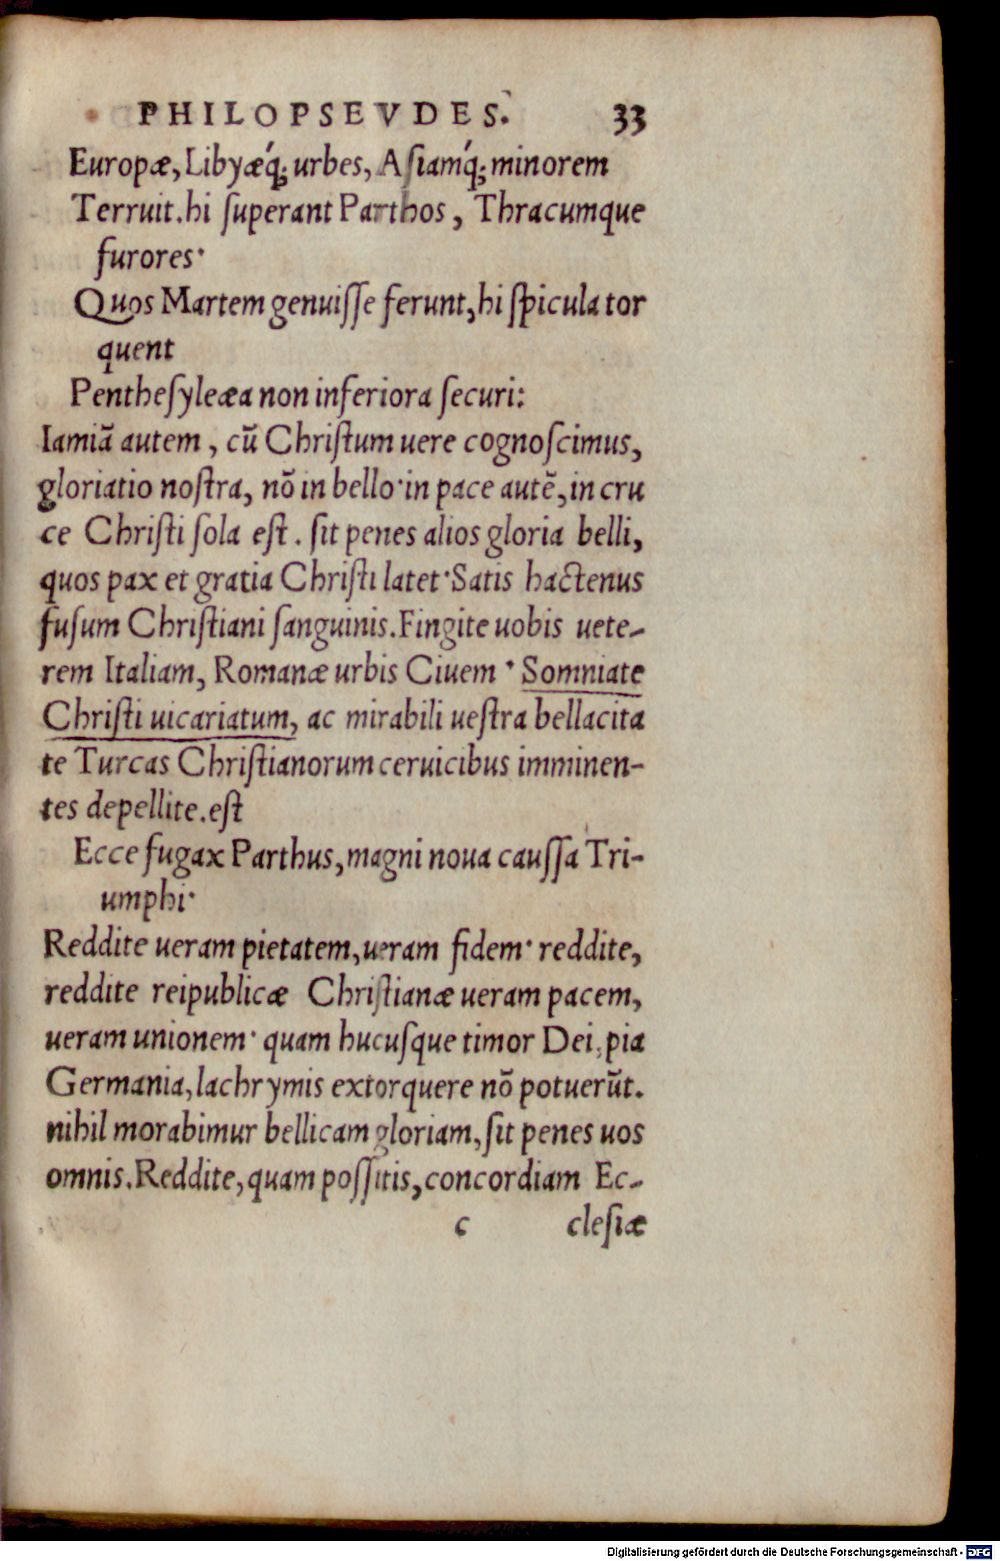 PHILOPSEVDES. 33
Europæ, Libyæq́; urbes, Aſiamq́; minorem
Terruit. hi ſuperant Parthos, Thracumque
furores·
Quos Martem genuiſſe ferunt, hi ſpicula tor
quent
Pentheſyleæa non inferiora ſecuri:
Iamiā autem, cū Chriſtum uere cognoſcimus,
gloriatio noſtra, nō in bello· in pace autē, in cru
ce Chriſti ſola eſt. ſit penes alios gloria belli,
quos pax et gratia Chriſti latet· Satis hactenus
fuſum Chriſtiani ſanguinis. Fingite uobis uete-
rem Italiam, Romanæ urbis Ciuem · Somniate
Chriſti uicariatum, ac mirabili ueſtra bellacita
te Turcas Chriſtianorum ceruicibus imminen-
tes depellite. eſt
Ecce fugax Parthus, magni noua cauſſa Tri-
umphi·
Reddite ueram pietatem, ueram fidem· reddite,
reddite reipublicæ Chriſtianæ ueram pacem,
ueram unionem· quam hucuſque timor Dei, pia
Germania, lachrymis extorquere nō potuerūt.
nihil morabimur bellicam gloriam, ſit penes uos
omnis. Reddite, quam poſſitis, concordiam Ec-
c cleſiæ
Digitalisierung gefördert durch die Deutsche Forschungsgemeinschaft - DFG